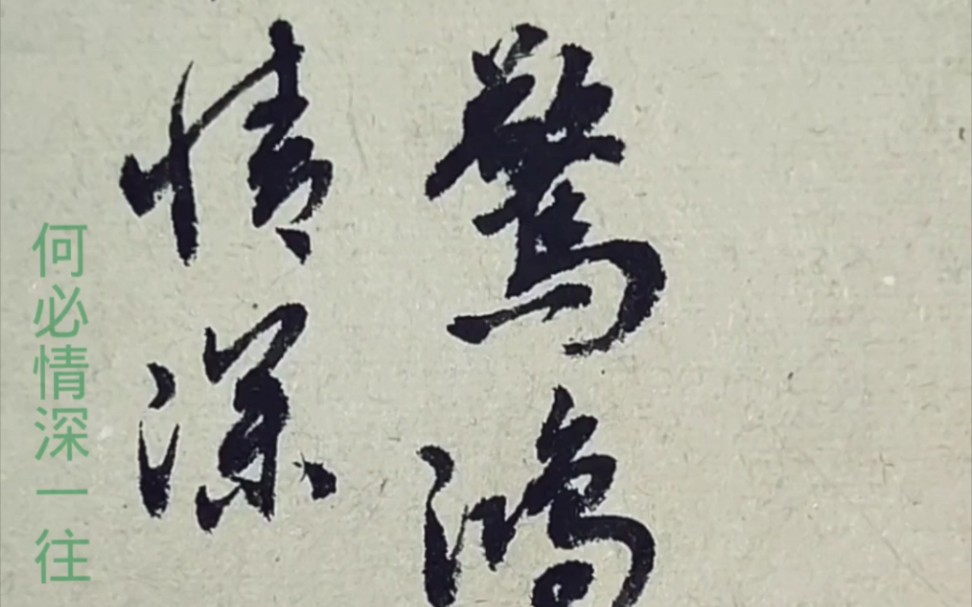 驚鴻
情深
何必情深一往